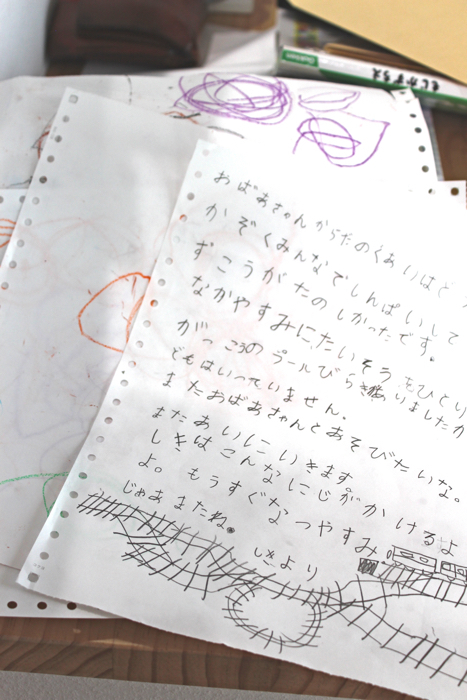 おばあちゃんからだのぐあいはど
かぞくみんなでしんぱいして
ずこうがたのしかったです。
なかやすみにたいそうをひとり
がっころのプールびらき
いましたが
どもはいっていません。
またおばあちゃんとあそびたいな。
またあいにいきます。
しきはこんなにじがかけるよ
よ。もうすぐなつやすみ
じゃあまたね。
しきより